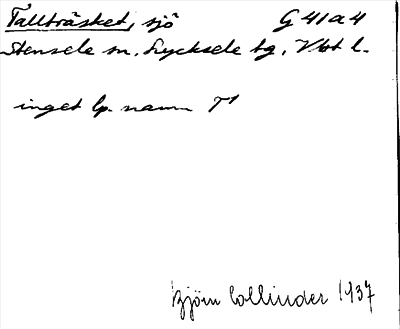 Tallträsket, sjö G 41 a 4
Stensele sn, Lycksele tg, Vbt l.
inget lp. namn T¹
Björn Collinder 1937